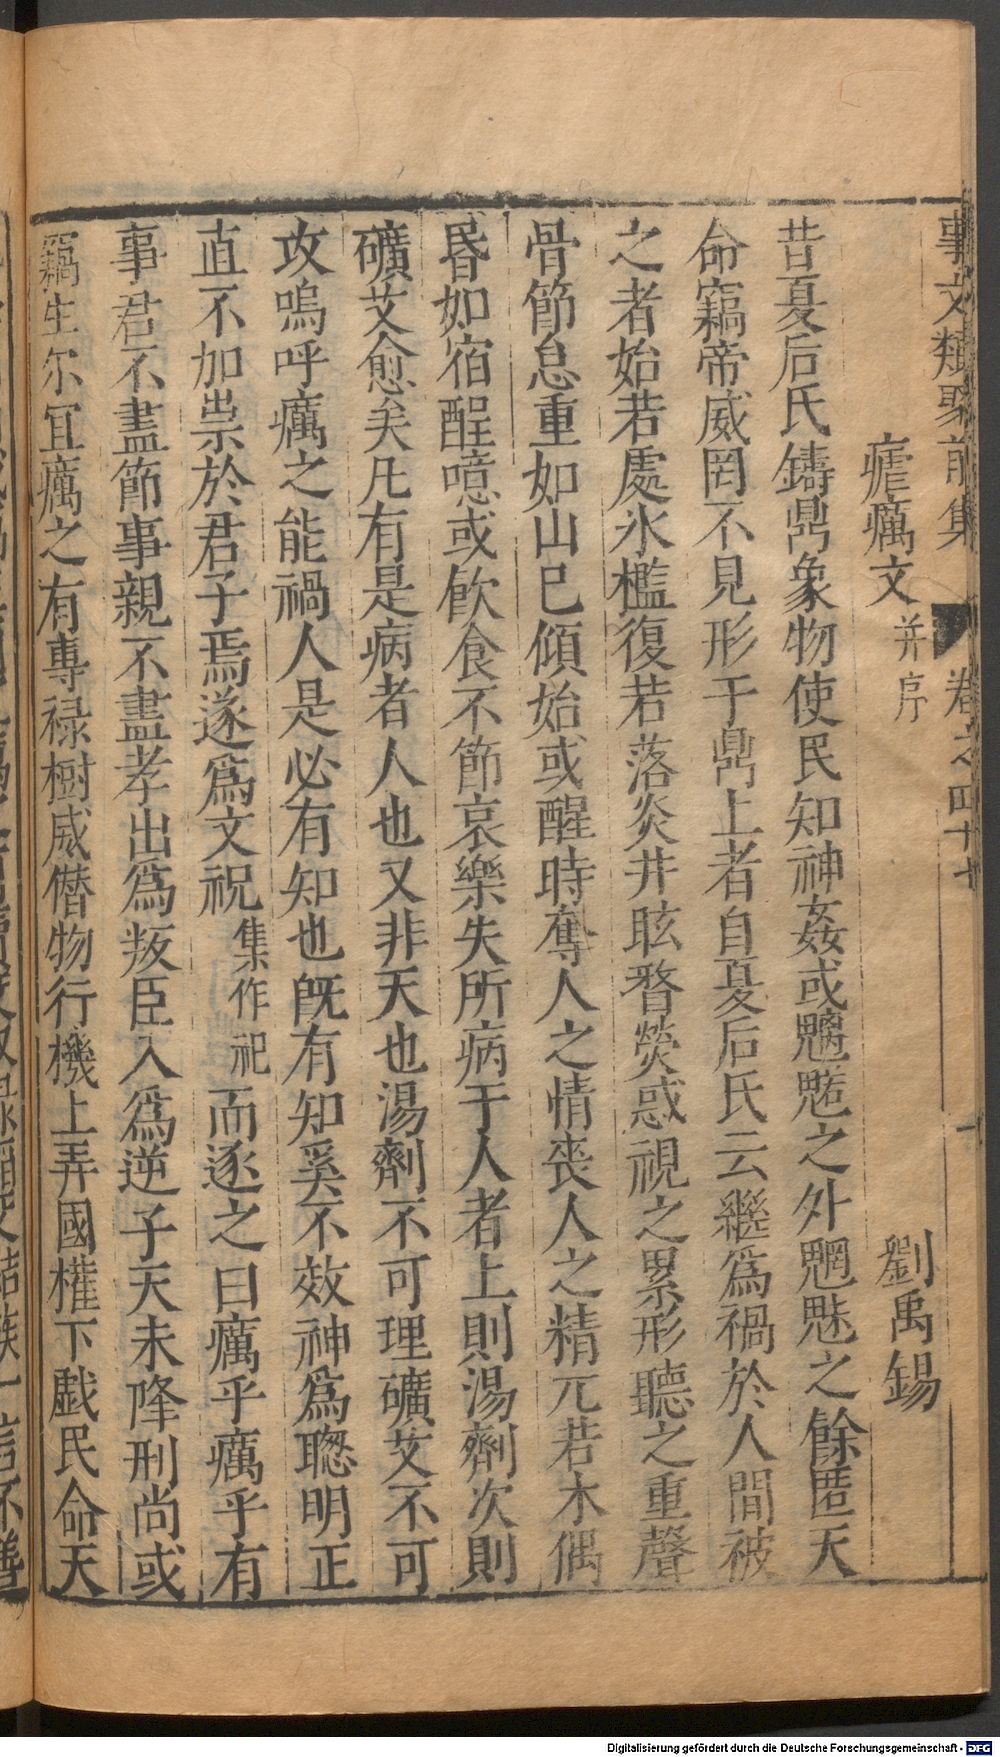 事文類聚前集 卷之四十七
瘧癘文 并序 劉禹錫
昔夏后氏鑄鼎象物使民知神姦或魍魎之外魍魅之餘匿天
命竊帝威罔不見形于鼎上者自夏后氏云繼爲禍於人間被
之者始若處氷檻復若落炎井眩瞀熒惑視之累形聽之重聲
骨節怠重如山巳傾始或醒時奪人之情喪人之精兀若木偶
昬如宿酲噫或飲食不節哀樂失所病于人者上則湯劑次則
礦艾愈矣凡有是病者人也又非天也湯劑不可理礦艾不可
攻嗚呼癘之能禍人是必有知也旣有知奚不效神爲聦明正
直不加祟於君子焉遂爲文祝集作祀而逐之曰癘乎癘乎有
事君不盡節事親不盡孝出爲叛臣入爲逆子天未降刑尚或
竊生尔宜癘之有專禄樹威僣物行機上弄國權下戯民命天
Digitalisierung gefördert durch die Deutsche Forschungsgemeinschaft - DFG